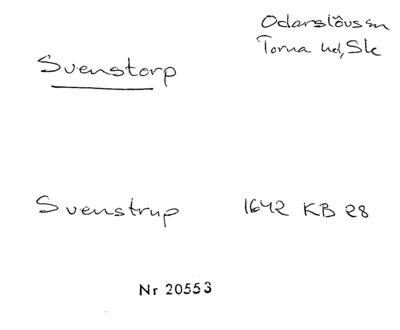 Odarslövs sn
Torna hd, Sk
Svenstorp
Svenstrup 1642 KB 28
Nr 20553